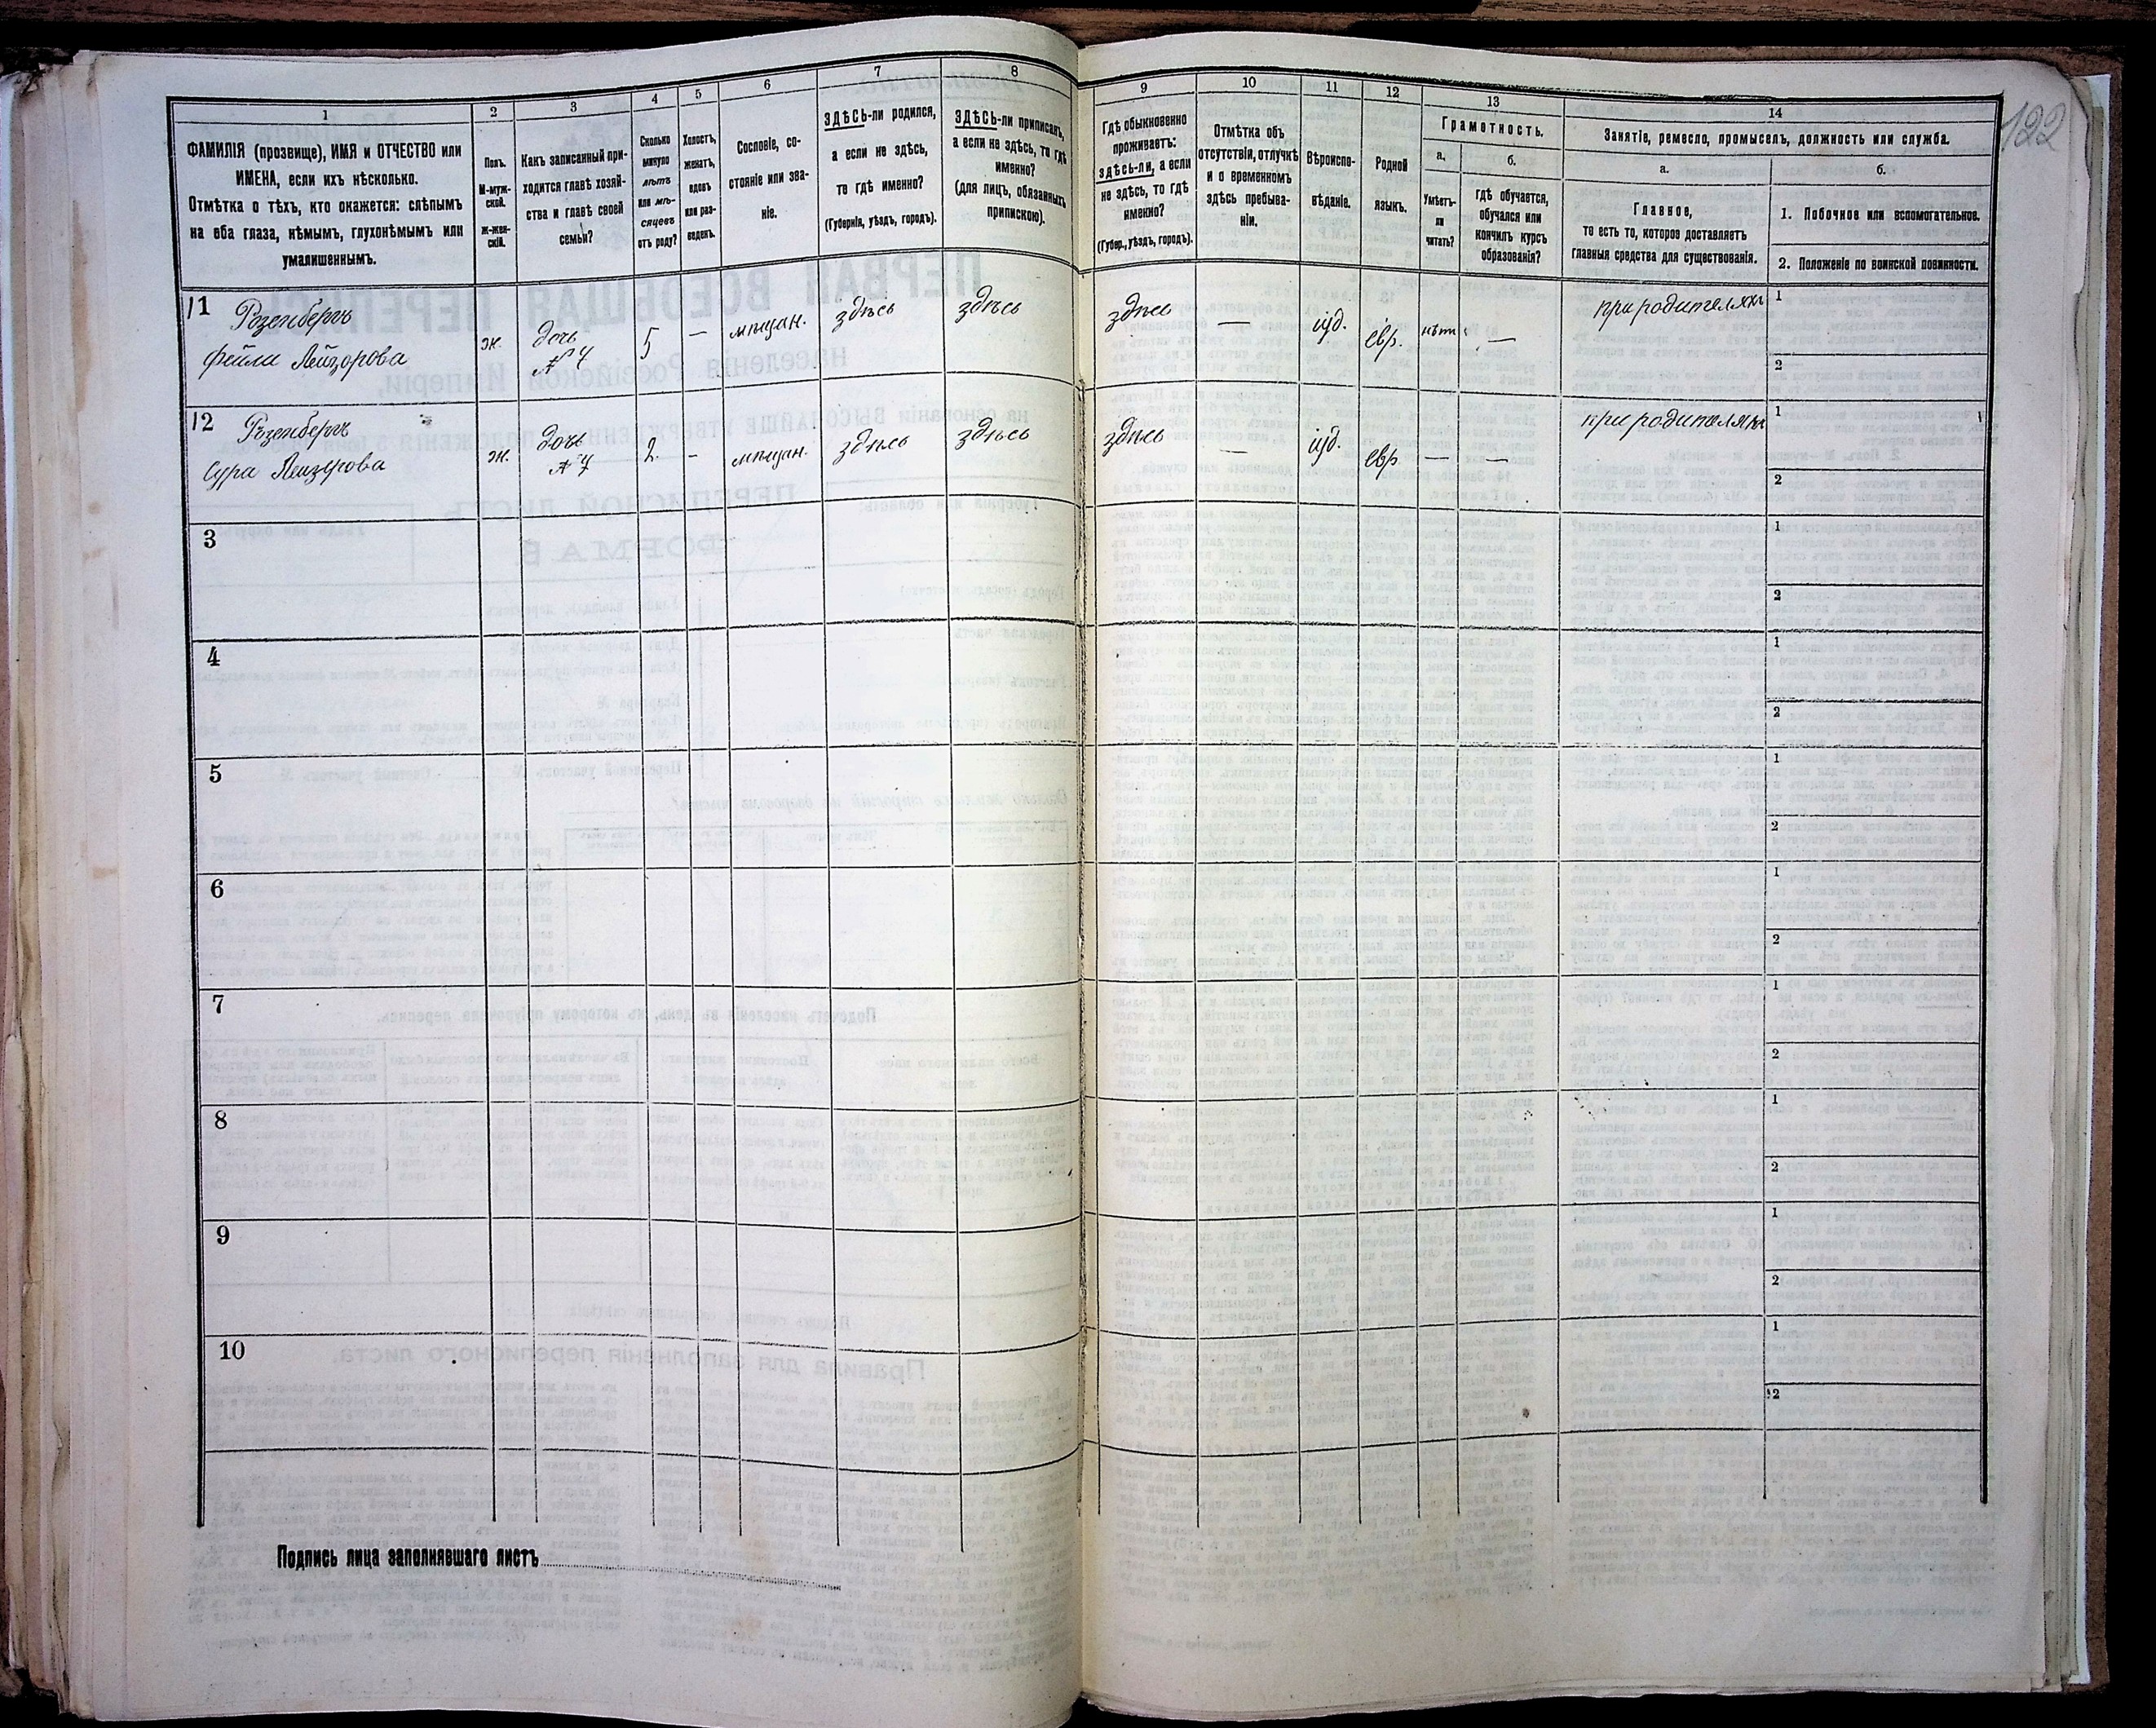 122
1
ФАМИЛІЯ (прозвище), ИМЯ и ОТЧЕСТВО или
ИМЕНА, если ихъ нѣсколько.
Отмѣтка о тѣхъ, кто окажется: слѣпымъ
на оба глаза, нѣмымъ, глухонѣмымъ или
умалишеннымъ.
2
Полъ.
М-муж-
ской.
Ж-жен-
скій.
3
Какъ записанный при-
ходится главѣ хозяй-
ства и главѣ своей
семьи?
4
Сколько
минуло
лѣтъ
или мѣ-
сяцевъ
отъ роду?
5
Холостъ,
женатъ,
вдовъ
или раз-
веденъ.
6
Сословіе, со-
стояніе или зва-
ніе.
7
ЗДѢСЬ-ли родился,
а если не здѣсь,
то гдѣ именно?
(Губернія, уѣздъ, городъ).
8
ЗДѢСЬ-ли приписанъ,
а если не здѣсь, то гдѣ
именно?
(для лицъ, обязанныхъ
припискою).
9
Гдѣ обыкновенно
проживаетъ:
здѣсь-ли, а если
не здѣсь, то гдѣ
именно?
(Губер., уѣздъ, городъ).
10
Отмѣтка объ
отсутствіи, отлучкѣ
и о временномъ
здѣсь пребыва-
ніи.
11
Вѣроиспо-
вѣданіе.
12
Родной
языкъ.
13
Грамотность.
а.
Умѣетъ-
ли
читать?
б.
Гдѣ обучается,
обучался или
кончилъ курсъ
образованія?
14
Занятіе, ремесло, промыселъ, должность или служба.
а.
Главное,
то есть то, которое доставляетъ
главныя средства для существованія.
б.
1. Побочное или вспомогательное.
2. Положеніе по воинской повинности.
11 Розенбергъ
Фейга Лейзорова
ж.
дочь
№ 4
5
—
мѣщан.
здѣсь
здѣсь
здѣсь
—
іуд.
евр.
нѣтъ
—
при родителяхъ
1
2
12 Розенбергъ
Сура Лейзерова
ж.
дочь
№ 4
2
-
мѣщан.
здѣсь
здѣсь
здѣсь
—
іуд.
евр.
—
—
при родителяхъ
1
2
3
1
2
4
1
2
5
1
2
6
1
2
7
1
2
8
1
2
9
1
2
10
1
2
Подпись лица заполнявшаго листъ